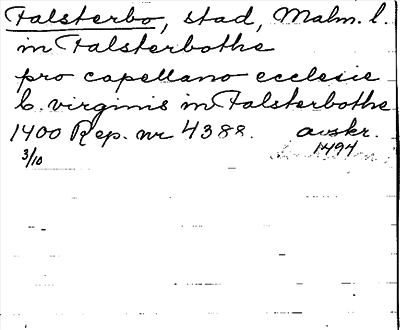 Falsterbo, stad, Malm. l.
in Falsterbothe
pro capellano ecclesie
b. virginis in Falsterbothe
1400 Rep. nr 4388. avskr.
3/10 1494